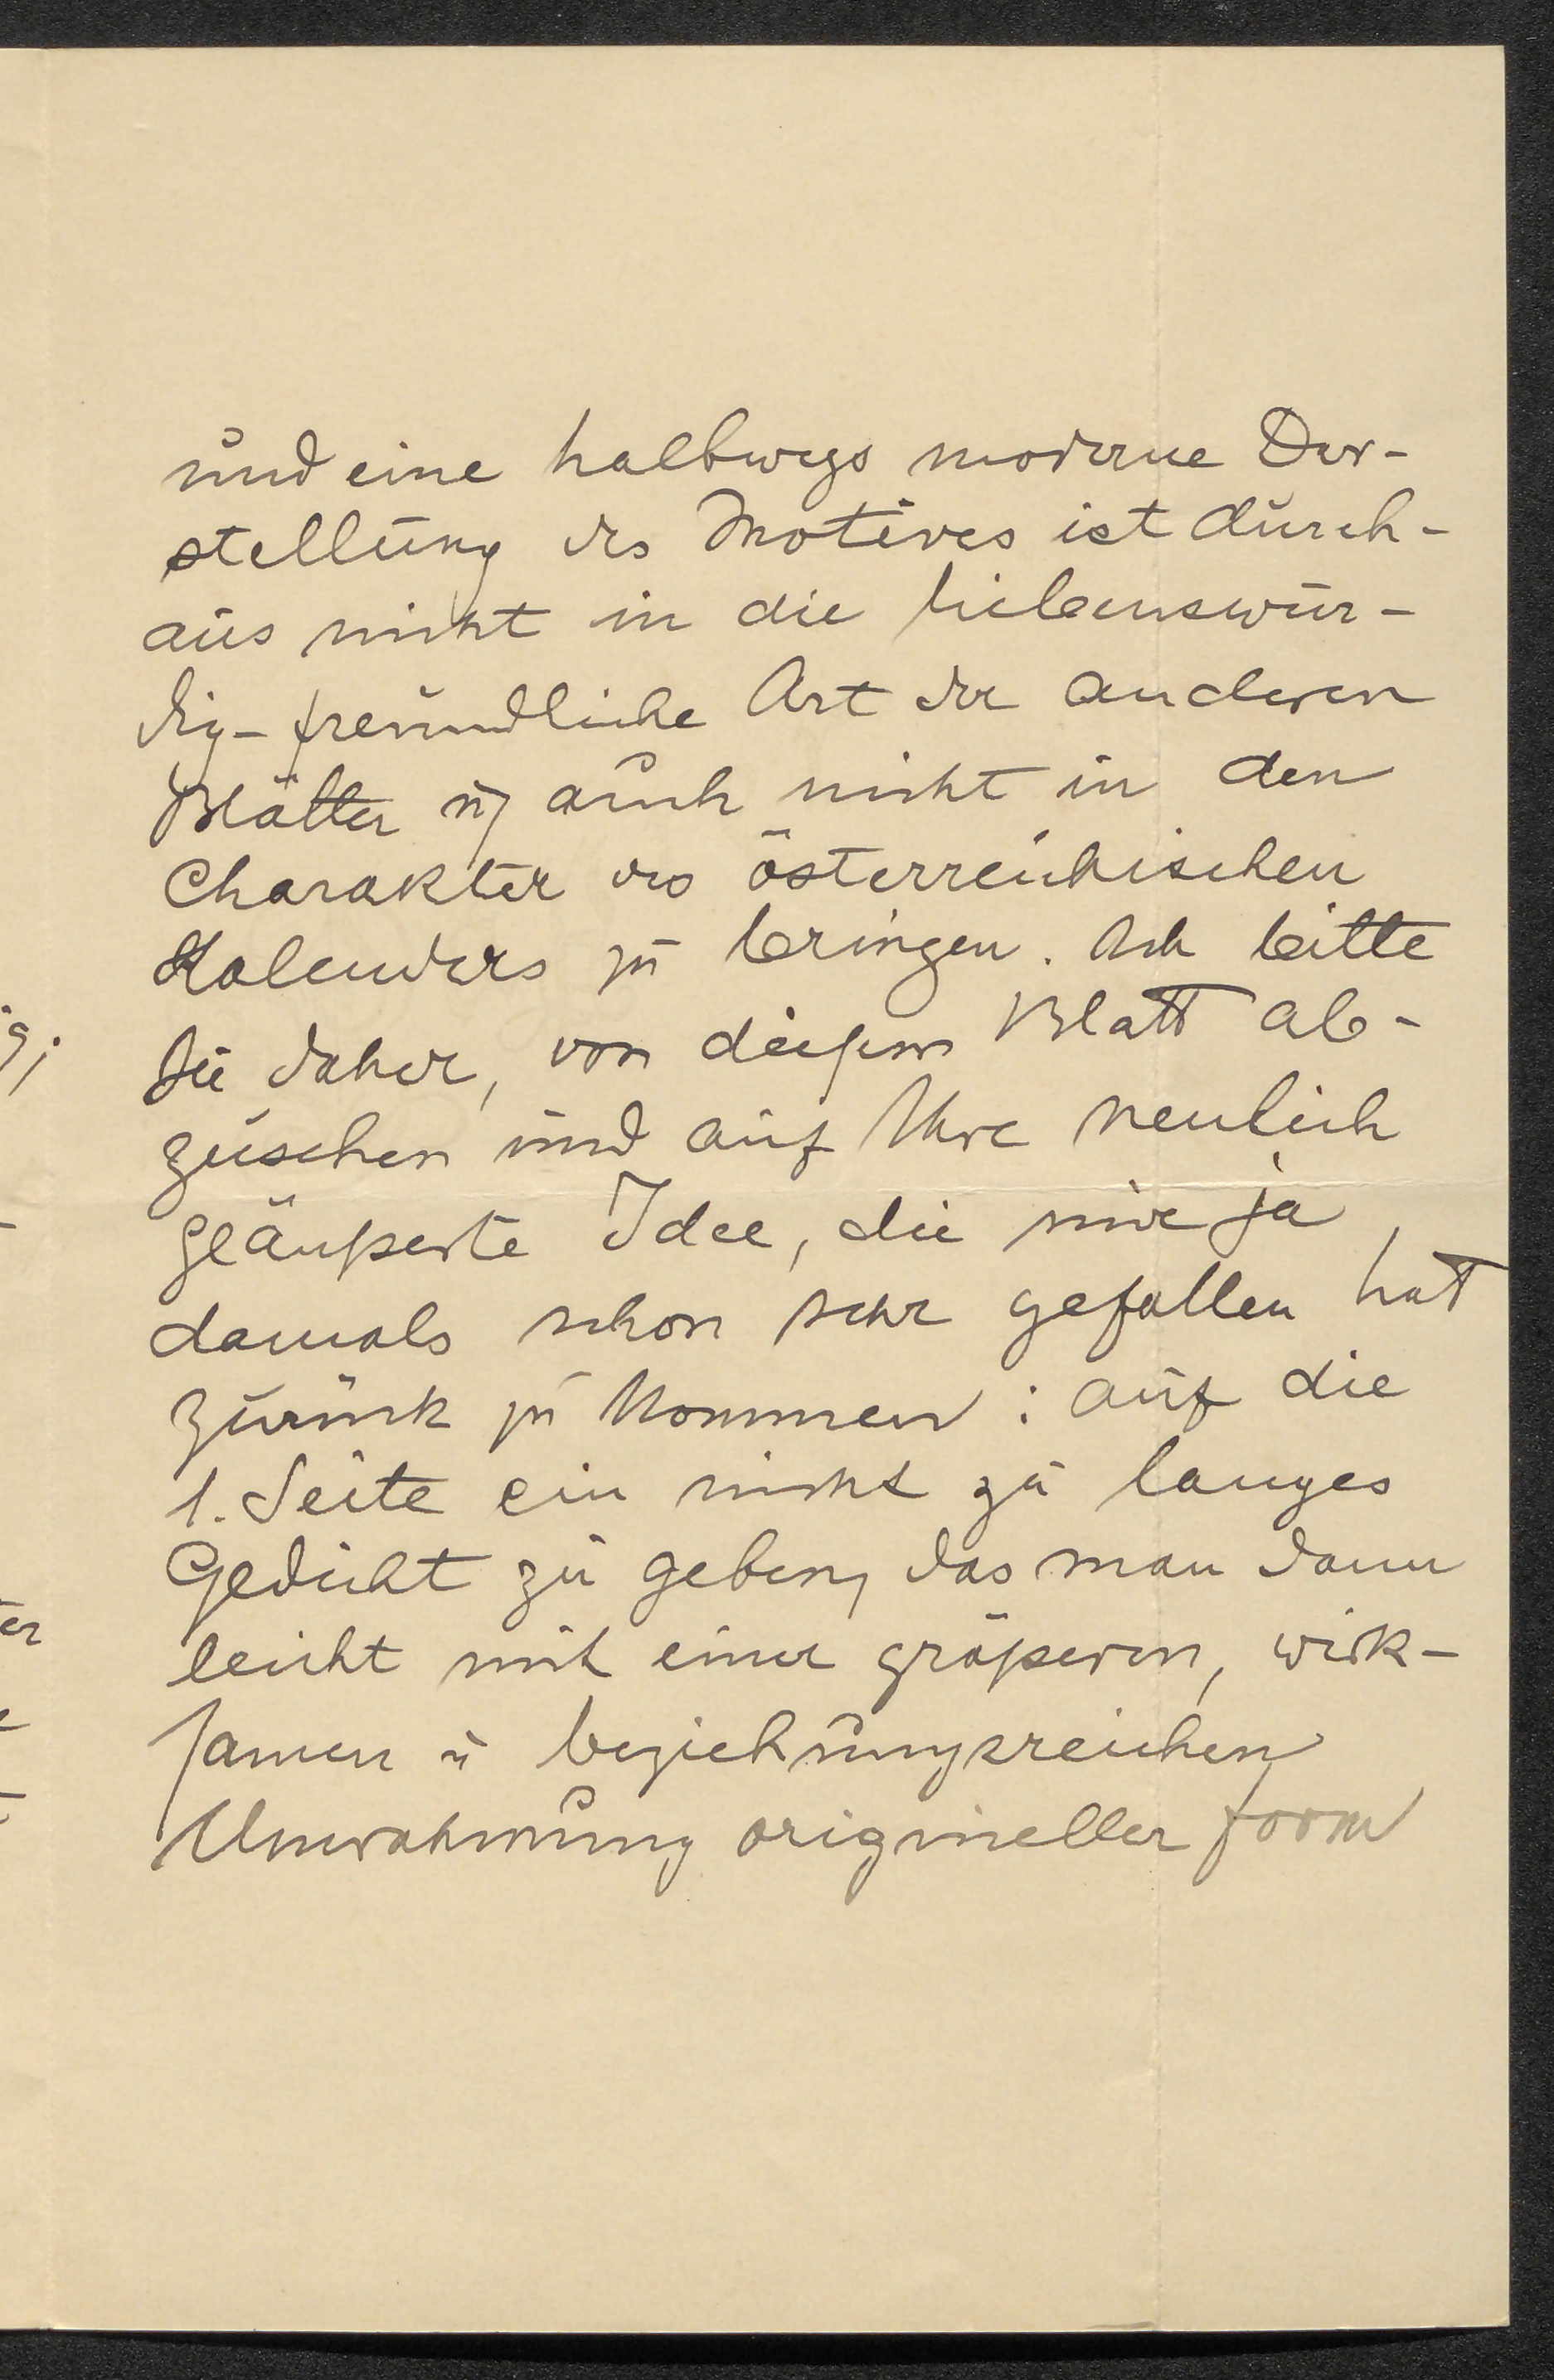 und eine halbwegs moderne Dar-
stellung des Motives ist durch-
aus nicht in die liebenswür-
dig-freundliche Art der anderen
Blätter u. auch nicht in den
Charakter des österreichischen
Kalenders zu bringen. Ich bitte
Sie daher, von diesem Blatt ab-
zusehen und auf Ihre neulich
geäußerte Idee, die mir ja
damals schon sehr gefallen hat
zurück zu kommen: auf die
1. Seite ein nicht zu langes
Gedicht zu geben, das man dann
leicht mit einer größeren, wirk-
samen u beziehungsreichen
Umrahmung origineller Form